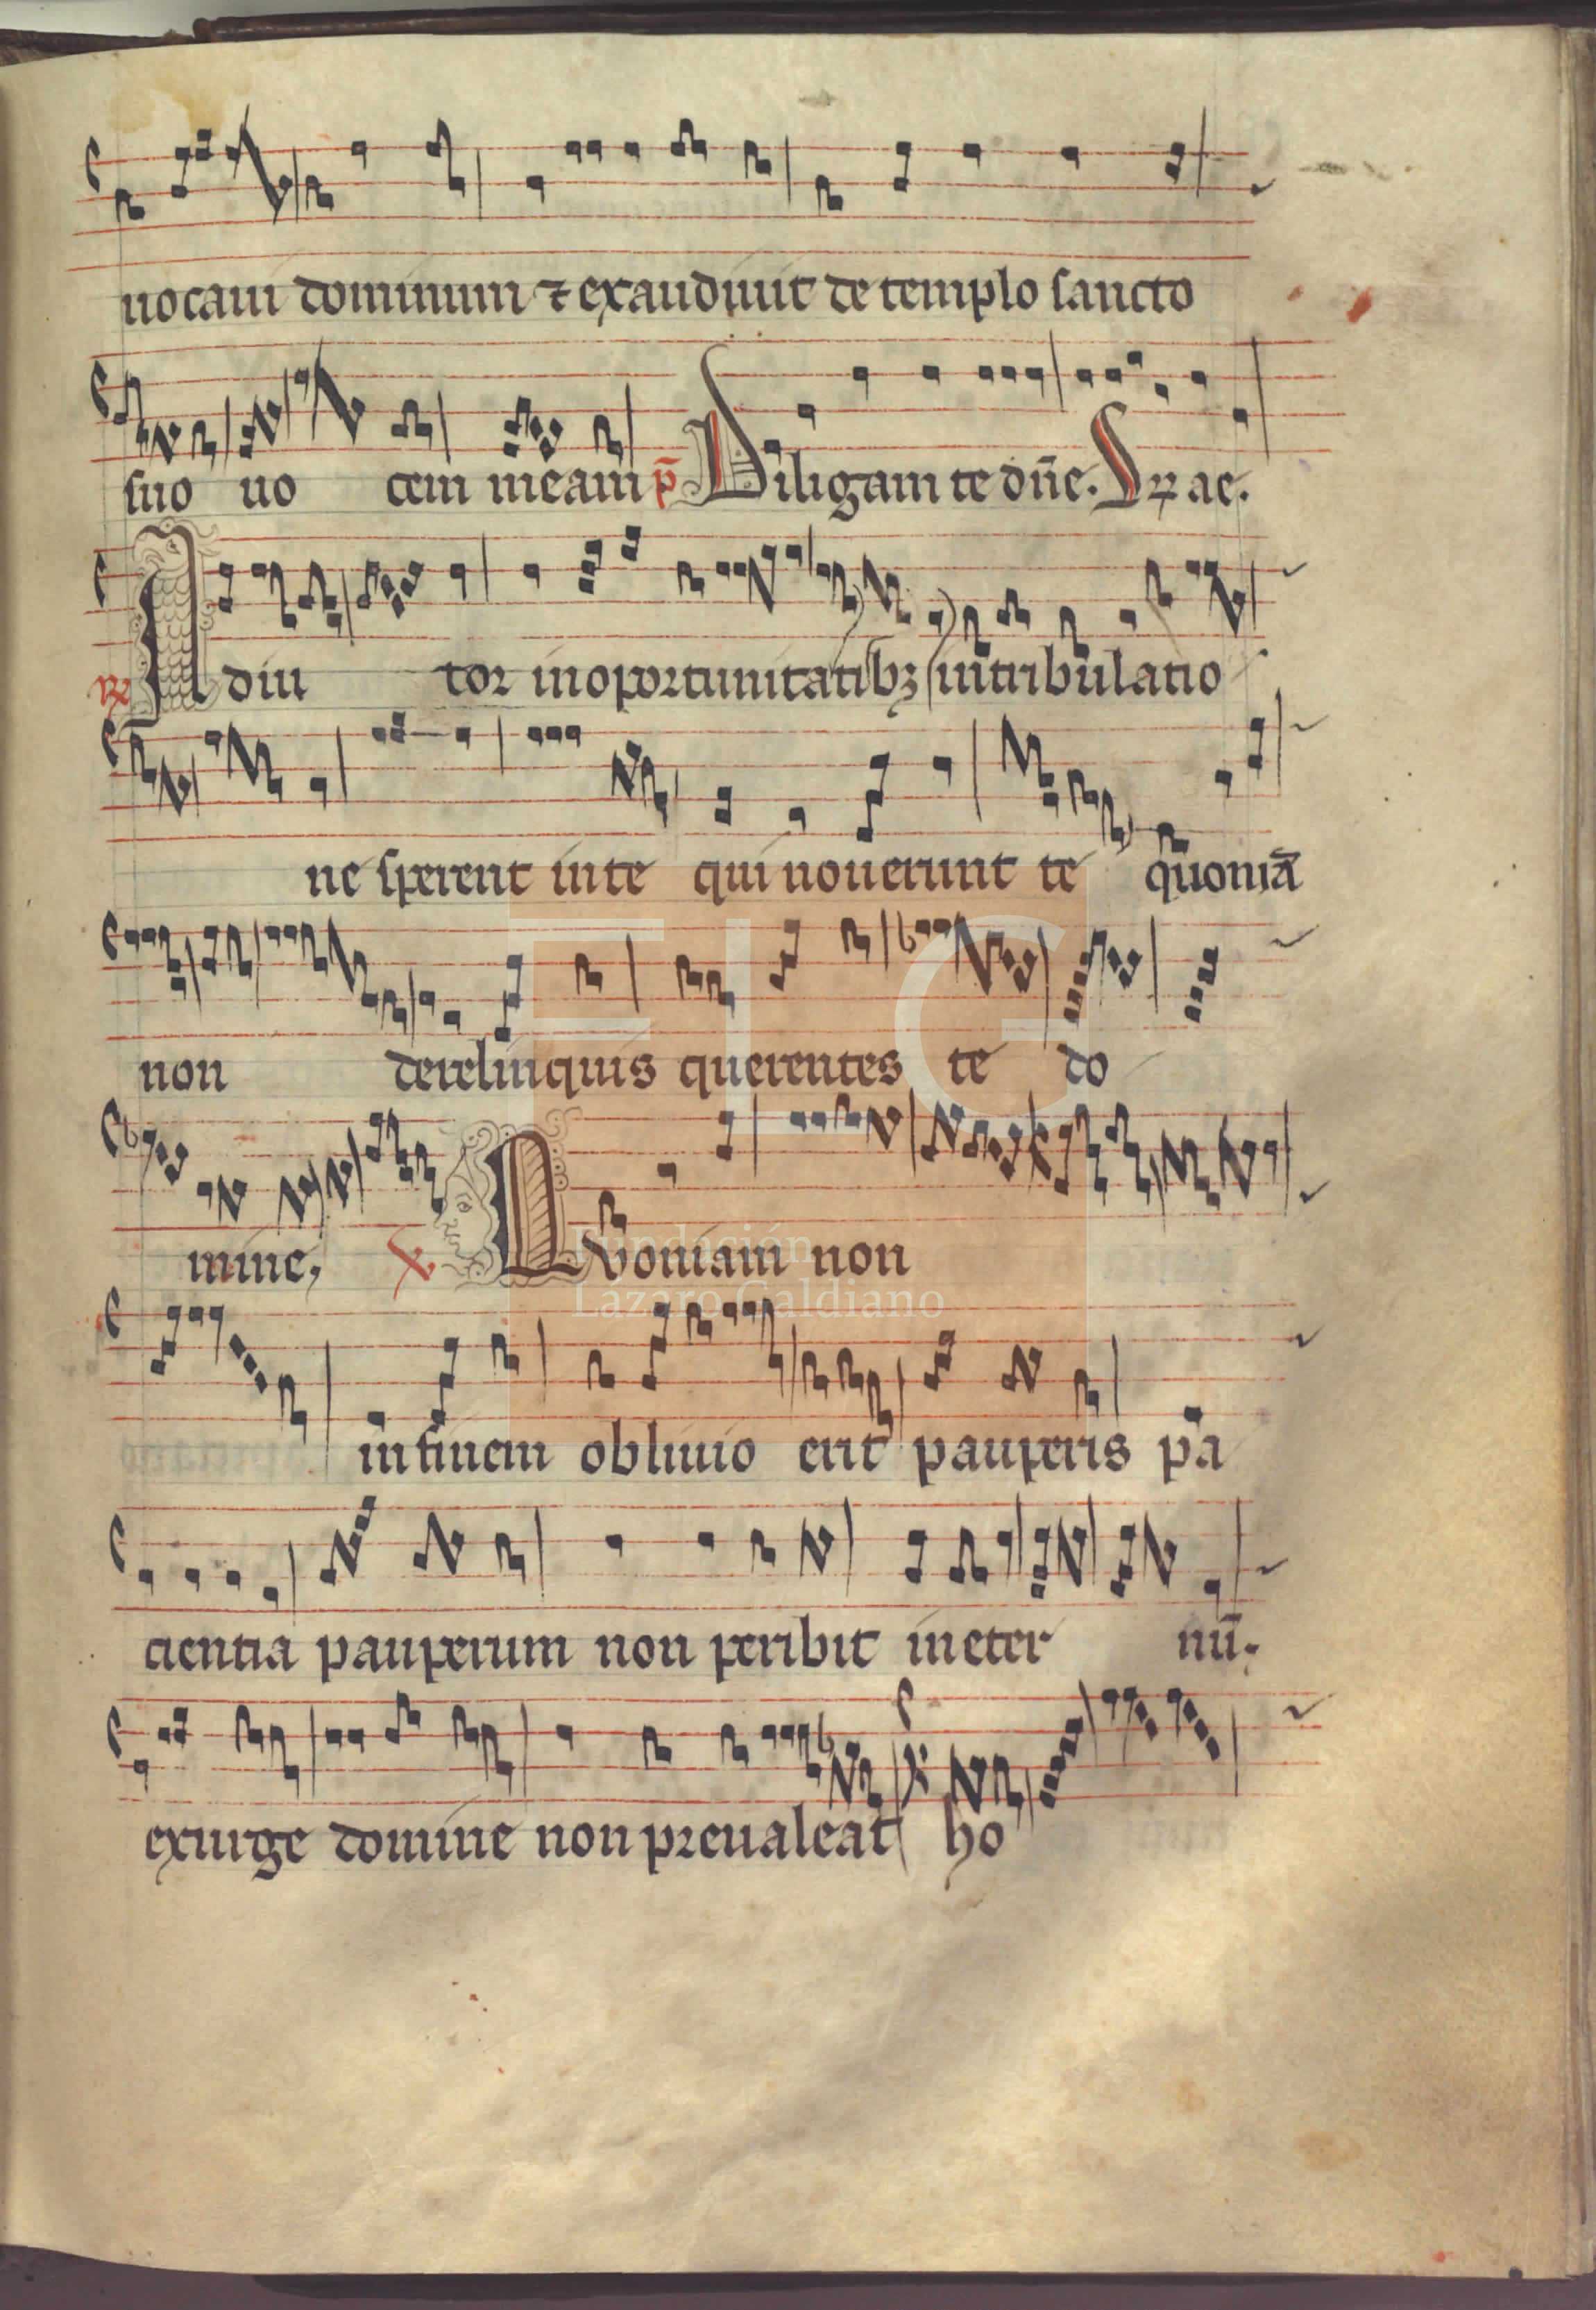 uocaui dominum ⁊ exaudiuit de templo sancto
suo uo cem meam p̄ Diligam te dn̄e. S ꝝ ae.
℟ Adiu tor inoportunitatibꝫ intribulatio
ne sperent inte qui nouerunt te quoniā
non derelinquis querentes te do
mine, ꝟ Quoniam non
Fundación
Lázaro Galdiano
infinem obliuio erit pauperis pa
cientia pauperum non peribit ineter nū.
exurge domine non preualeat ho